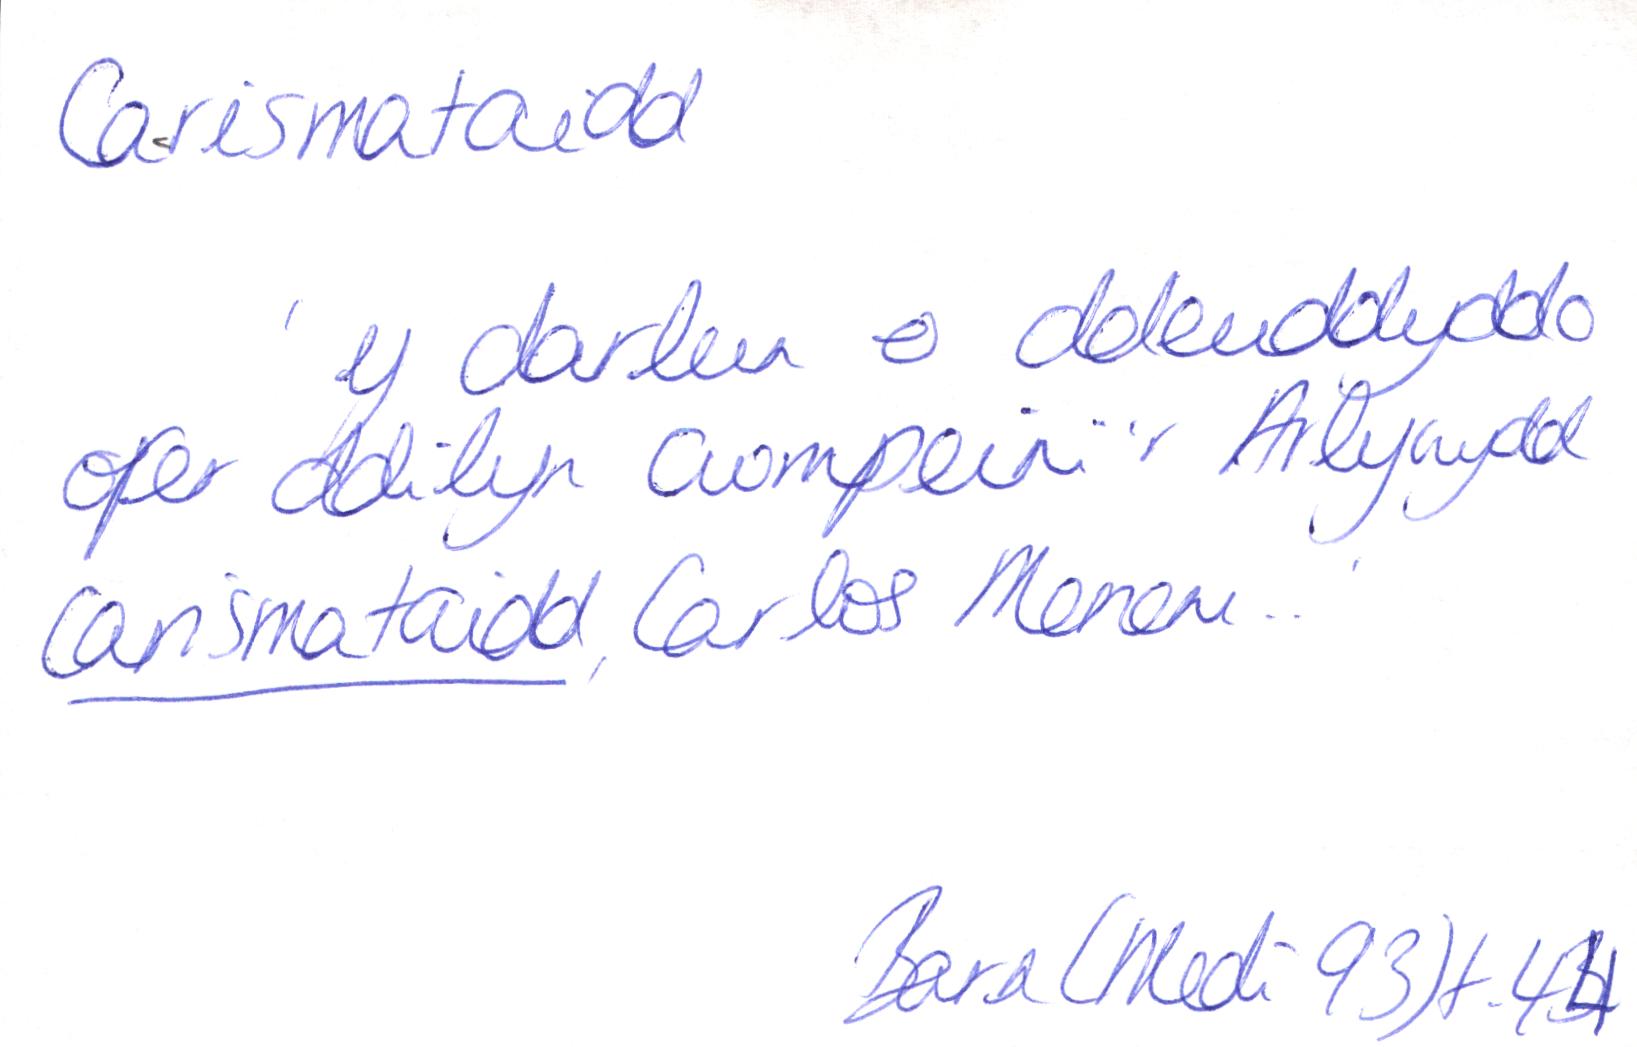 Carismataidd
'y darlun o ddeuddydd o
ofer ddilyn cwmpeini'r Arlywydd
carismataidd, Carlos Menem..'
Barn (Medi 93) t. 44